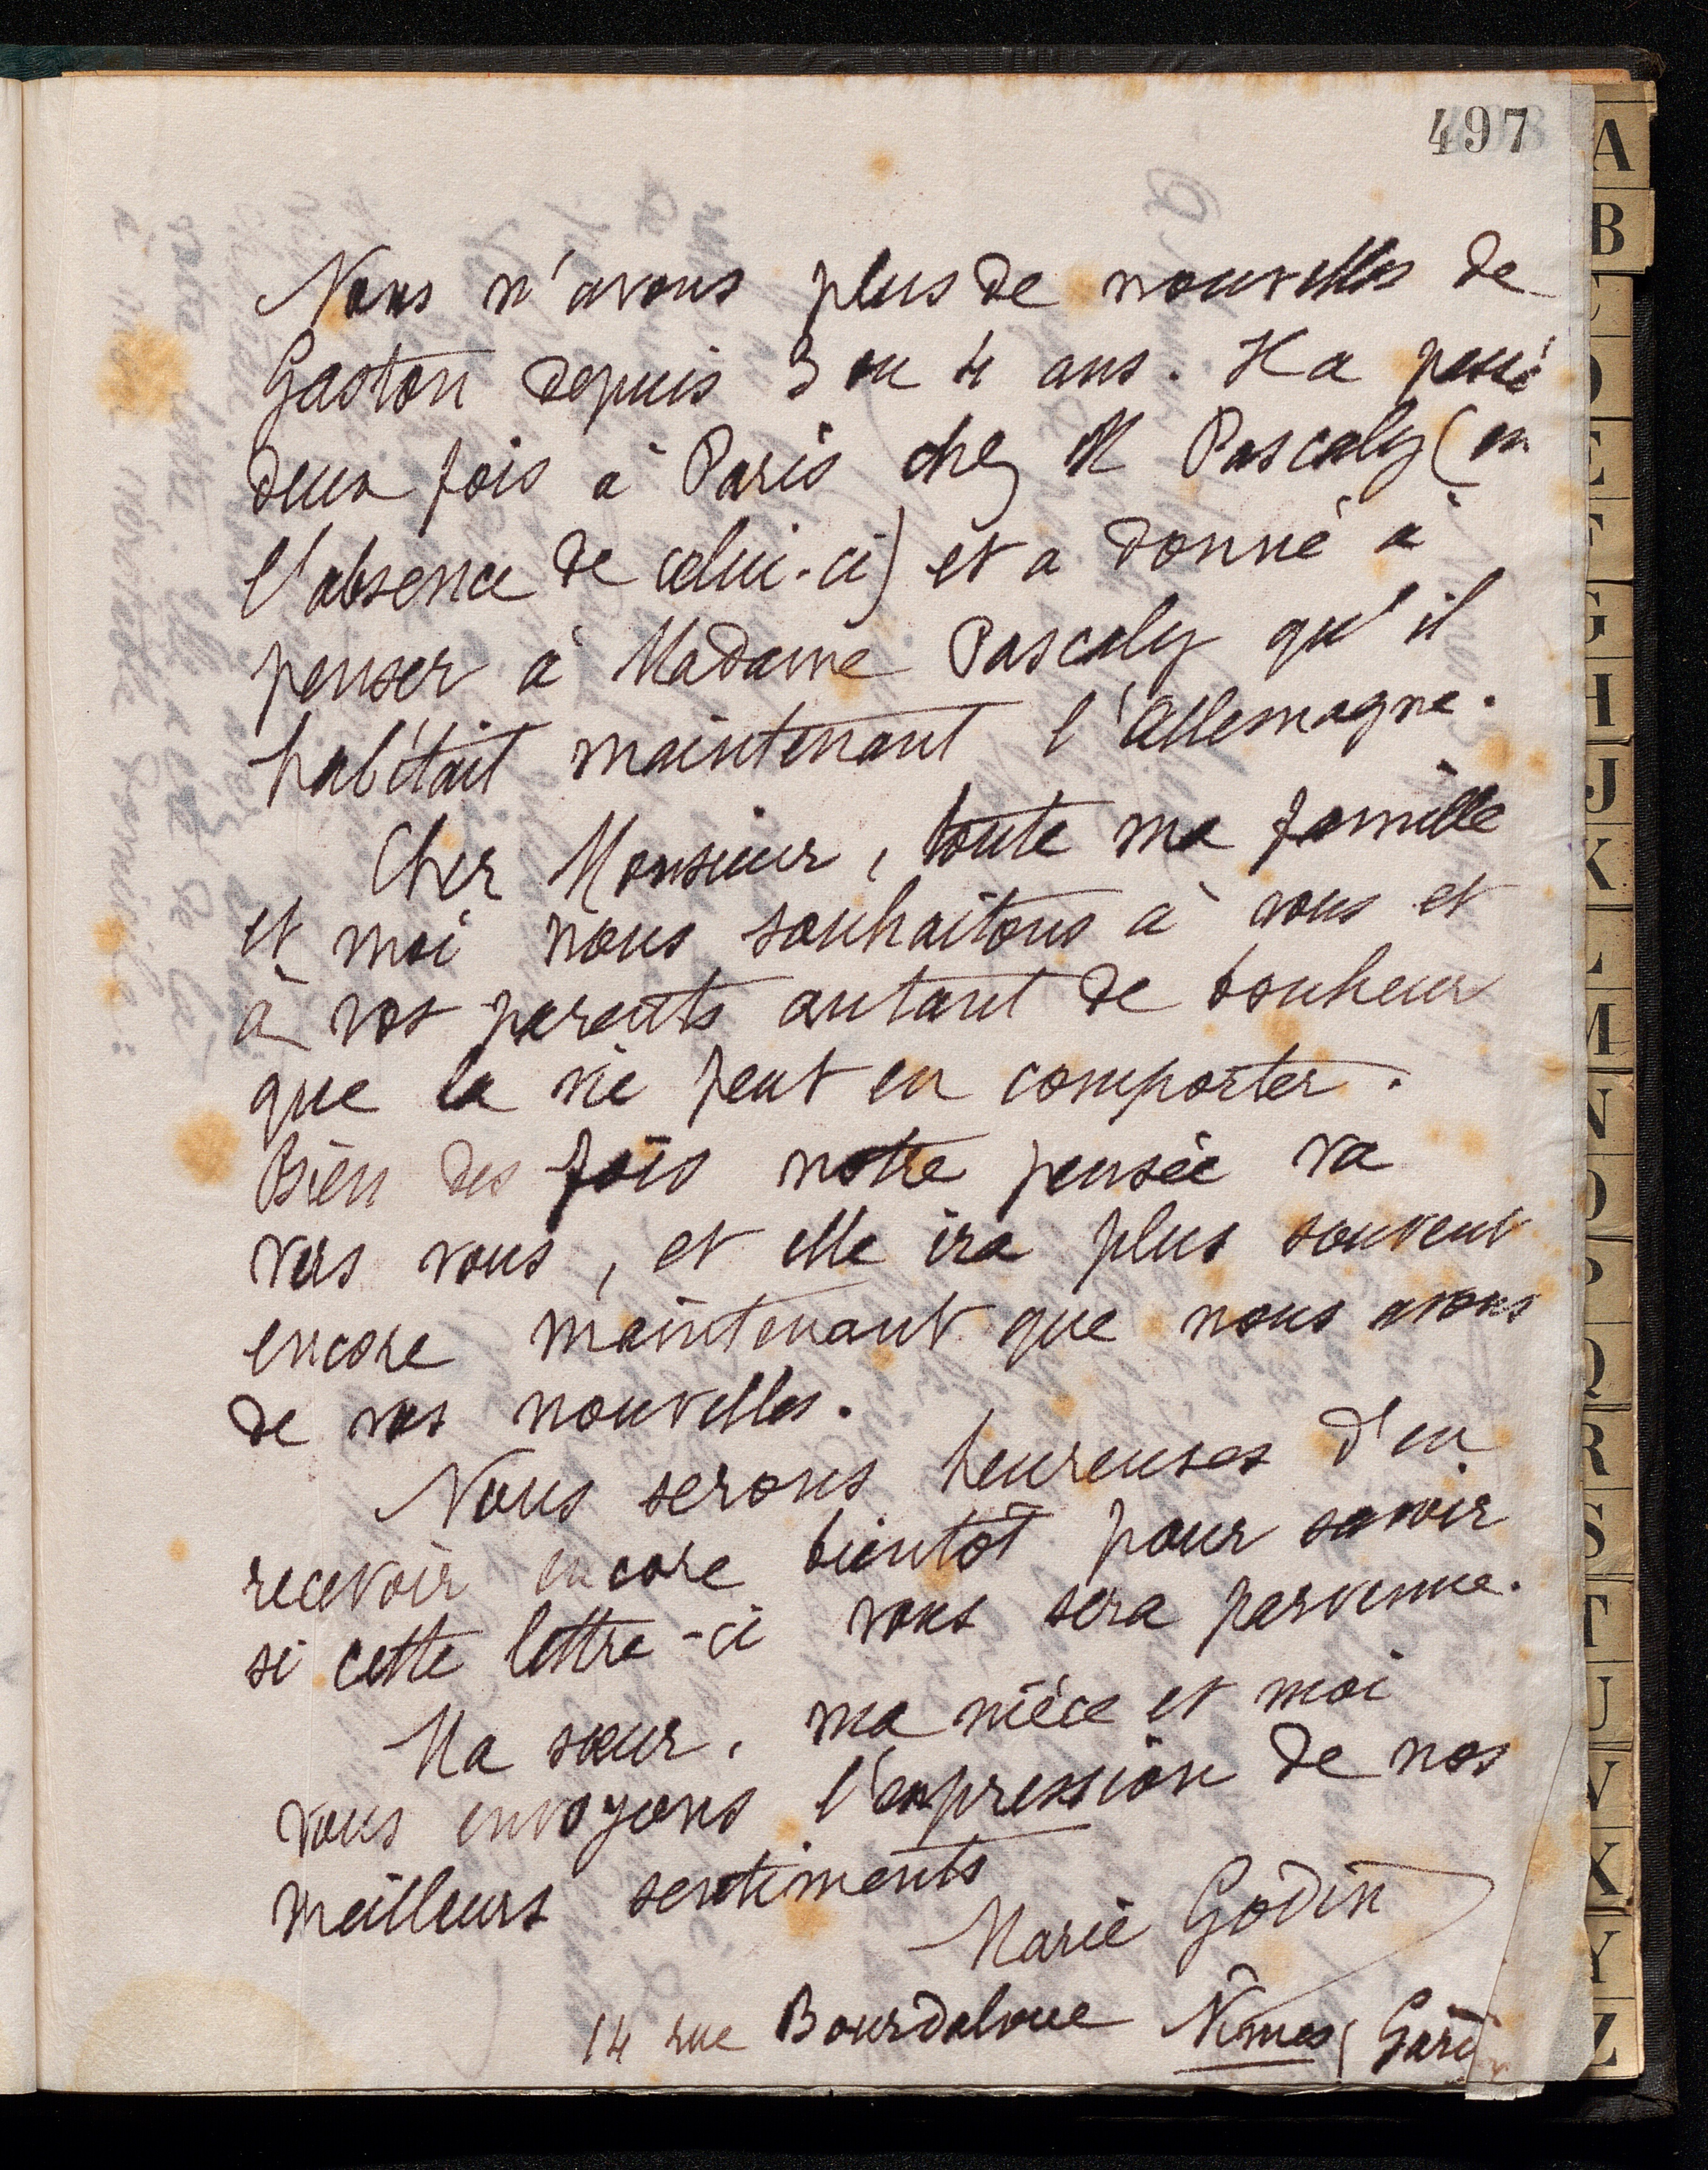 497
Nous n'avons plus de nouvelles de
Gaston depuis 3 ou 4 ans. Il a passé
deux fois à Paris chez M Pascaly (en
l'absence de celui-ci) et a donné à
penser à Madame Pascaly qu'il
habitait maintenant l'Allemagne.
Cher Monsieur, toute ma famille
et moi nous souhaitons à vous et
à vos parents autant de bonheur
que la vie peut en comporter.
Bien des fois notre pensée va
vers vous, et elle ira plus souvent
encore maintenant que nous avons
de vos nouvelles.
Nous serons heureuses d'en
recevoir encore bientôt pour savoir
si cette lettre-ci vous sera parvenue.
Ma sœur, ma nièce et moi
vous envoyons l'expression de nos
meilleurs sentiments
Marie Godin
14 rue Bourdaloue Nîmes (Gard)
A
B
C
D
E
F
G
H
J
K
L
M
N
O
P
Q
R
S
T
U
V
X
Y
Z